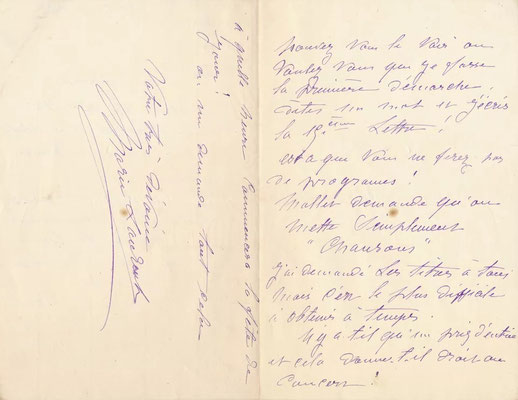 pouvez vous le voir ou
voulez vous que je fasse
la première démarche!
dites un mot et j'écris
la 12eme Lettre!
est ce que vous ne ferez pas
de programes!
Mallet demande qu'on
mette Simplement
"Chansons"
j'ai demandé les titres à tous
mais c'est le plus difficile
à obtenir à temps.
N'y a t il qu'un prix d'entrée
et cela donne t il droit au
Concert!
à quelle heure commencera la fête de
jour!
on me demande tout cela
Votre très dévouée
Marie Laurent